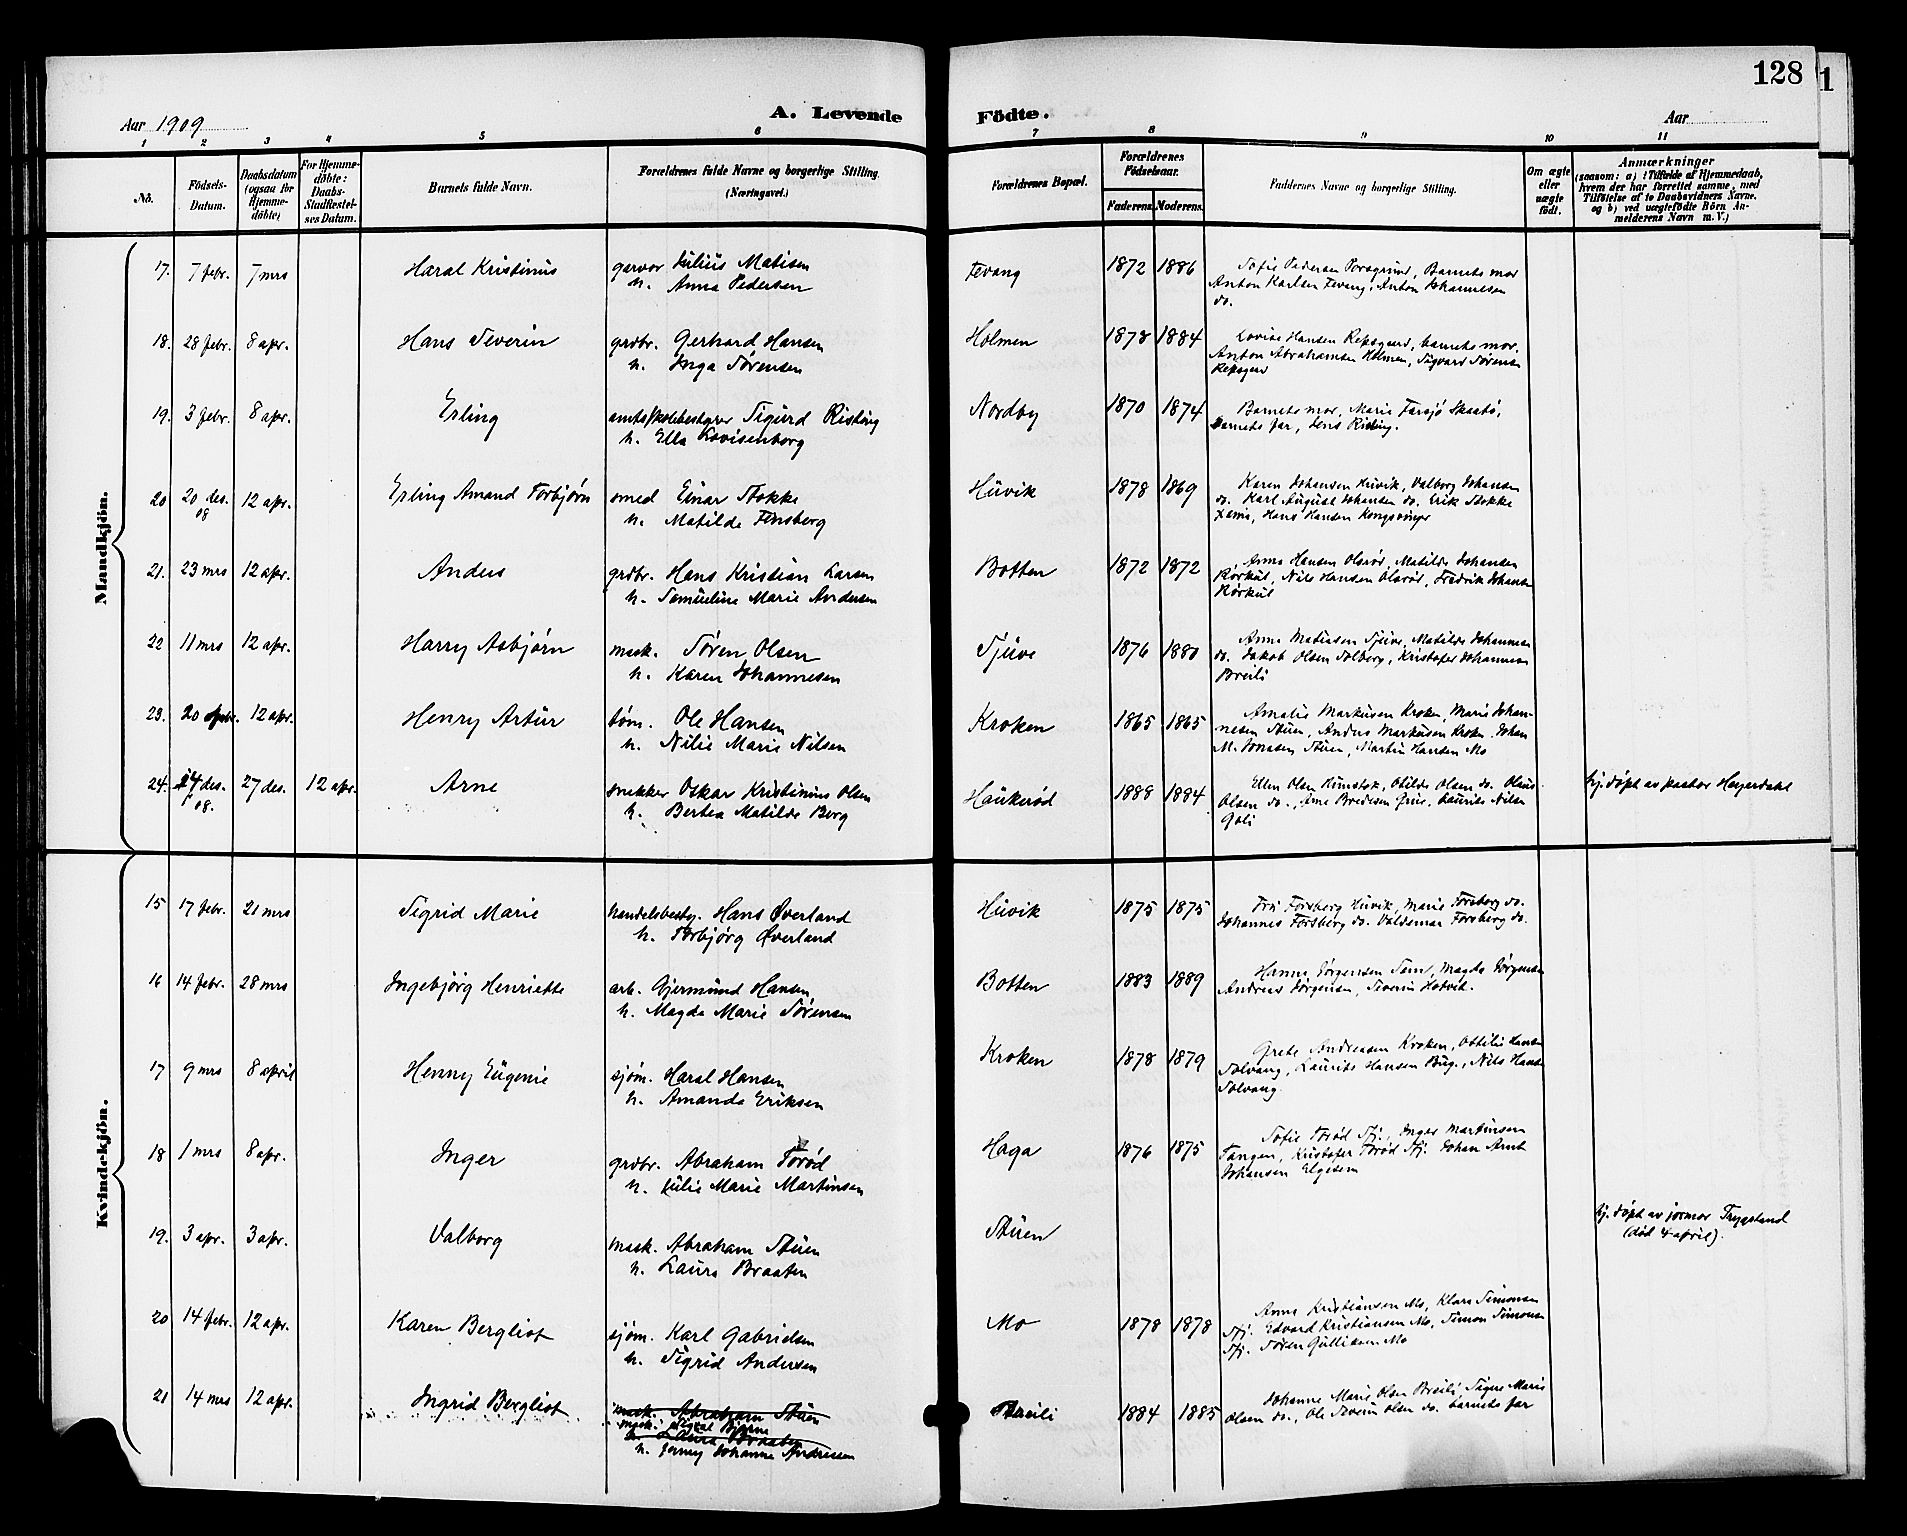 128
1
Aar 1909
A. Levende
Födte.
Aar
1 2 3 4 5 6 7 8 9 10 11
No.
Födsels-Datum.
Daabsdatum (ogsaa for Hjemmedöbte)
For Hjemmedöbte: Daabs-Stadfæstelses Datum.
Barnets fulde Navn.
Forældrenes fulde Navne og borgerlige Stilling.
(Næringsvei.)
Forældrenes Bopæl.
Forældrenes Födselsaar.
Faderens. Moderens.
Faddernes Navne og borgerlige Stilling.
Om ægte eller uægte födt.
Anmærkninger
(saasom: a) i Tilfælde af Hjemmedaab, hvem der har forrettet samme, med Tilföielse af to Daabsvidners Navne, og b) ved uægtefödte Börn Anmelderens Navn m. V.)
Mandkjön.
17. 7 febr. 7 mrs Haral Kristinus garver Julius Matisen Fevang 1872 1886 Sofie Pedersen Porsgrund, Barnets mor
h. Anna Pedersen Anton Karlsen Fevang, Anton Johannesen
do.
18. 28 febr. 8 apr. Hans Severin grdbr. Gerhard Hansen Holmen 1878 1884 Lovise Hansen Repsgaard, barnets mor,
h. Inga Sørensen Anton Abrahamsen Holmen, Sigvard Sørensen
19. 3 febr. 8 apr. Erling amtsskolebestyrer Sigurd Risting Nordby 1870 1874 Barnets mor, Marie Farsjø Skaatø,
h. Ella Lovisenborg Barnets far, Jens Risting.
20 20 des. 08 12 apr. Erling Amand Torbjørn smed Einar Stokke Huvik 1878 1869 Karen Johansen Huvik, Valborg Johansen
h. Matilde Tønsberg do. Karl August Johansen do. Erik Stokke
Hans Hansen Kongsvinger
21. 23 mrs 12 apr. Anders grdbr. Hans Kristian Larsen Botten 1872 1872 Anna Hansen Olsrød, Matilde Johansen
h. Samueline Marie Andersen Rørkul, Nils Hansen Olsrød, Fredrik Johansen
Rørkul
22 11 mrs 12 apr. Harry Asbjørn mask. Søren Olsen Tjuve 1876 1880 Anna Matisen Tjuve, Matilde Johannesen
h. Karen Johannesen do. Jakob Olsen Solberg, Kristofer Johannesen
Breili
23. 20 12 apr. Henry Artur tøm. Ole Hansen Kroken 1865 1865 Amalie Markusen Kroken, Marie Johan-
h. Nilie Marie Nilsen nesen Stuen, Anders Markusen Kroken. Johan
M. Jonasen Stuen, Martin Hansen Mo
24. 14 des. 08. 27 des. 12 apr. Arne snekker Oskar Kristinius Olsen Haukerød 1888 1884 Ellen Olsen Kumstok, Otilde Olsen do. Olaus hj. døpt av pastor Heyerdahl
h. Bertea Matilde Berg Olsen do., Laurits Nilsen
Kvindekjön.
15 17 febr. 21 mrs Sigrid Marie handelsbesty. Hans Øverland Huvik 1875 1875 Fru Forsberg Huvik, Marie Forsberg do.
h. Torbjørg Øverland Johannes Forsberg do. Valdemar Forsberg do.
16 14 febr. 28 mrs Ingebjørg Henriette arb. Gjermund Hansen Botten 1883 1889 Hanna Jørgensen Sem, Magda Jørgensen
h. Magda Marie Sørensen Andreas Jørgensen, Severin Hotvik.
17 9 mrs 8 april Henny Eugenie sjøm. Haral Hansen Kroken 1878 1879 Grete Andreasen Kroken, Ottilie Hansen
h. Amanda Eriksen Solvang, Laurits Hansen Bug., Nils Hansen
Solvang
18 1 mrs 8 apr. Inger grdbr. Abraham Torød Haga 1876 1875 Sofie Torød Stj., Inger Martinsen
h. Julie Marie Martinsen Tangen, Kristofer Torød Stj. Johan Arnt
Johansen Elgesem
19. 3 apr. 3 apr. Valborg mask. Abraham Stuen Stuen hj. døpt av jormor Trygstand
h. Laura Braaten (død 4 april).
20 14 febr. 12 apr. Karen Bergliot sjøm. Karl Gabrielsen Mo 1878 1878 Anna Kristiansen Mo, Klara Simonsen
h. Sigrid Andersen Stj. Edvard Kristiansen Mo, Simon Simonsen
Stj. Søren Gulliksen Mo
21 14 mrs 12 apr. Ingrid Bergliot mask. Abraham Stuen Breili 1884 1885 Johanne Marie Olsen Breili, Signe Marie
mask. Bjerne Olsen do., Ole Severin Olsen do. barnets far
h. Laura Braaten
h. Jenny Johanne Andresen